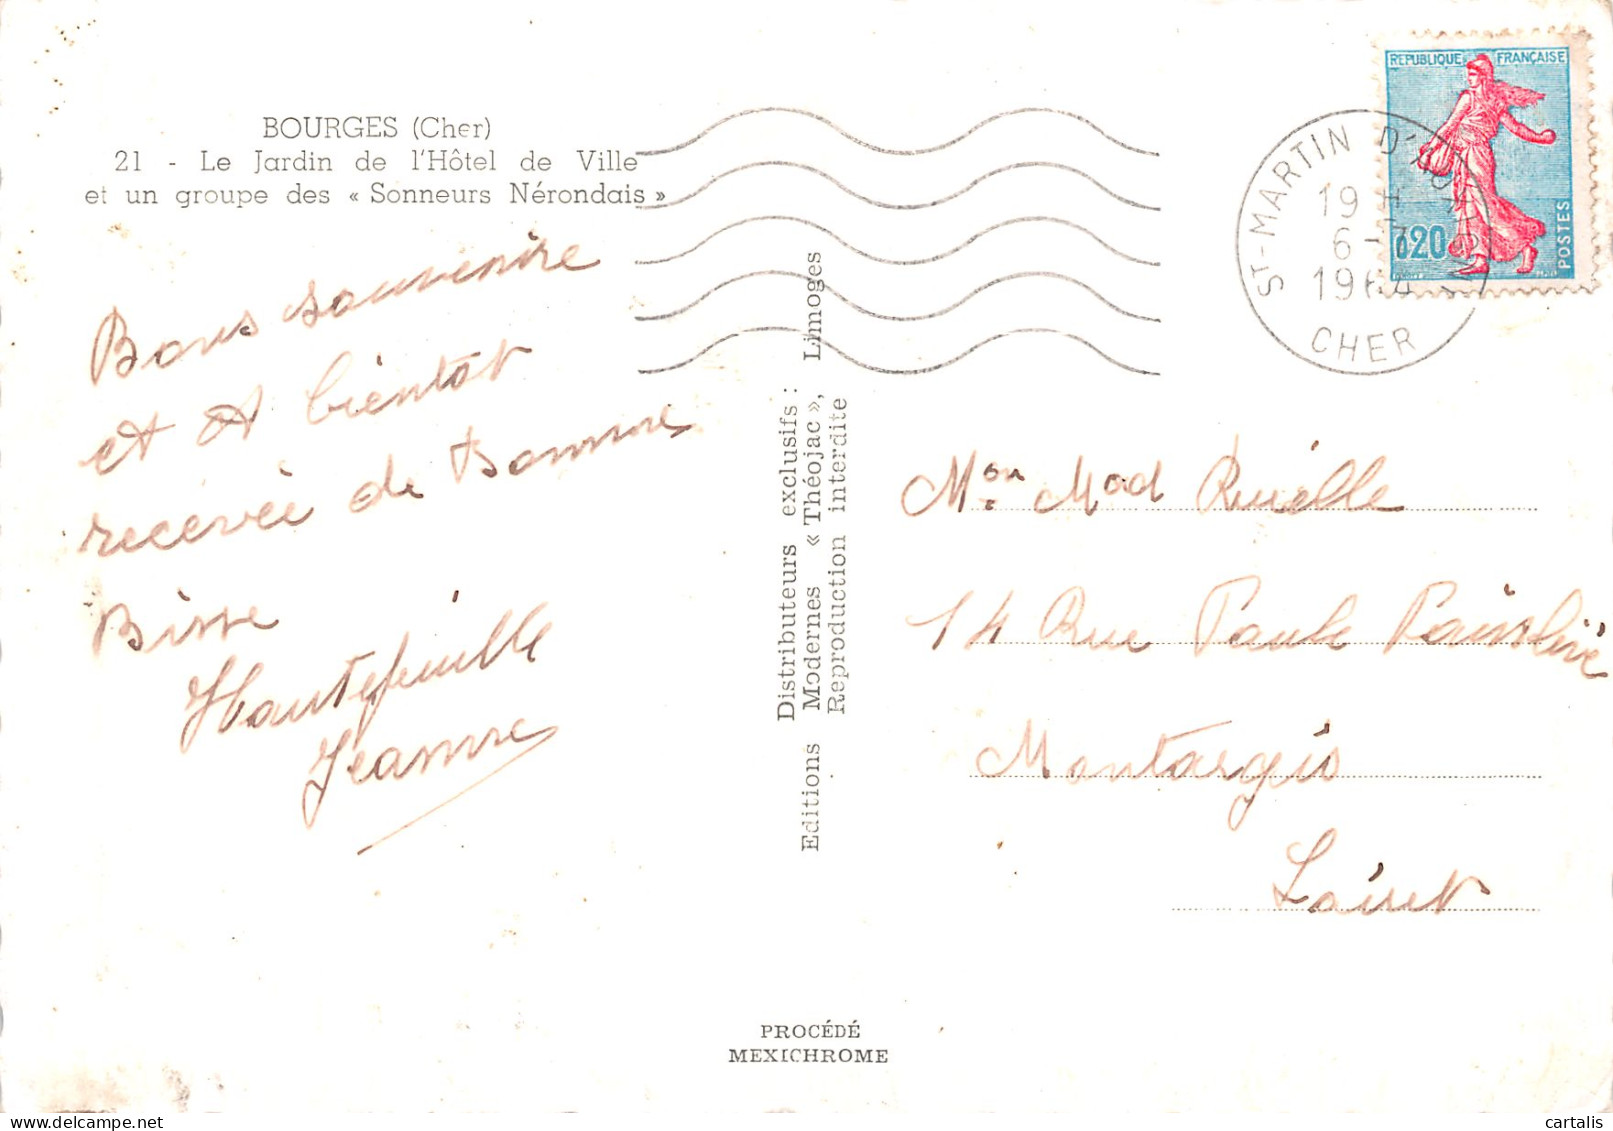 BOURGES (Cher)
21 - Le Jardin de l'Hôtel de Ville
et un groupe des « Sonneurs Nérondais »
Bons souvenire
et A bientot
recevée de bonnne
Bisse
Hautefeuille
Jeanne
Distributeurs exclusifs :
Editions Modernes « Théojac », Limoges
Reproduction interdite
REPUBLIQUE FRANÇAISE
0,20
POSTES
ST-MARTIN D'AUXIGNY
19 H
6-7
1964
CHER
Mon Mad Ruelle
14 Rue
Montargis
Loiret
PROCÉDÉ
MEXICHROME
cartalis